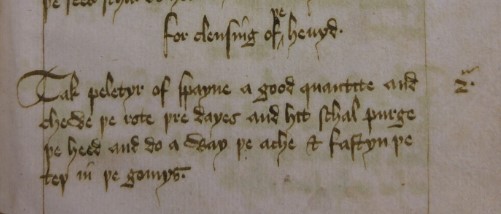 for clensing of þe hevyd.
Tak peletyr of spayne a good quantite and
chewe þe rote þre dayes and hit schal purge
þe heed and do a way þe ache & fastyn þe
teþ in þe gomys.
2.